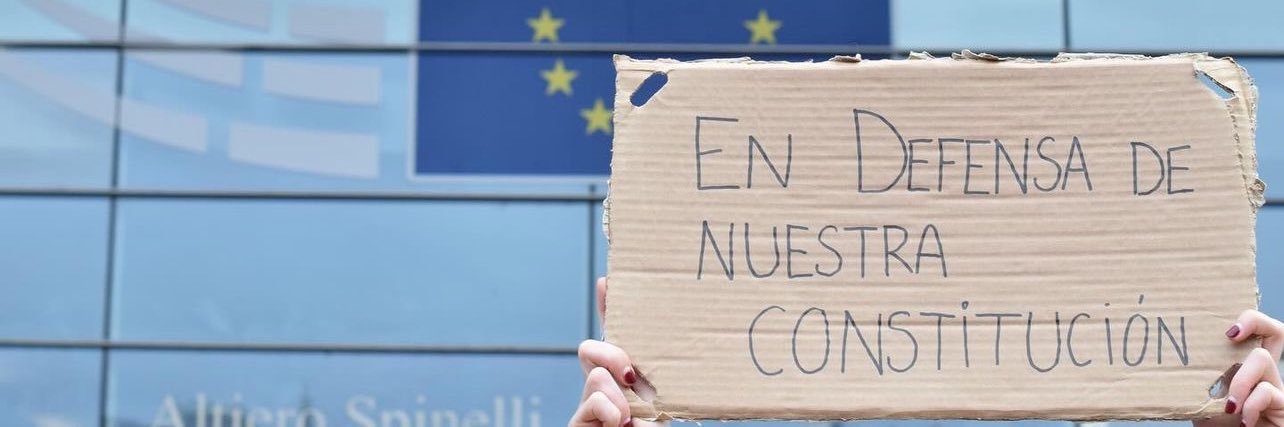 En DEFENSA DE
NUESTRA
CONSTiTUCiÓN
Altiero Spinelli